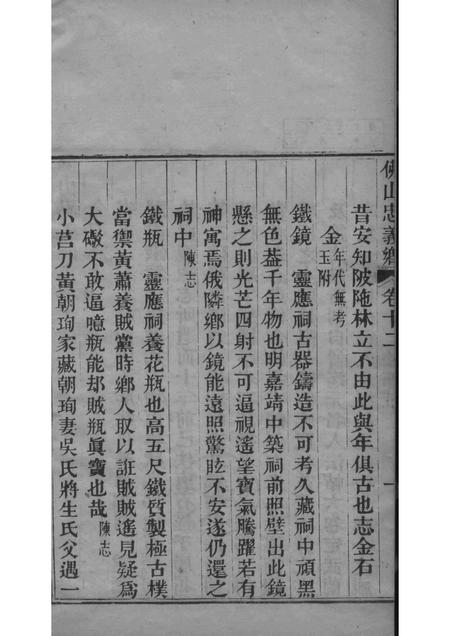 佛山忠義鄉志 卷十二
昔安知陂陁林立不由此與年俱古也志金石
金 年代無考 玉附
鐵鏡 靈應祠古器鑄造不可考久藏祠中頑黑
無色葢千年物也明嘉靖中築祠前照壁出此鏡
懸之則光芒四射不可逼視遙望寶氣騰躍若有
神寓焉俄隣鄉以鏡能遠照驚眩不安遂仍還之
祠中 陳志
鐵瓶 靈應祠養花瓶也高五尺鐵質製極古樸
當禦黃蕭養賊黨時鄉人取以誑賊賊遙見疑爲
大礮不敢逼噫瓶能却賊瓶眞寶也哉 陳志
小莒刀黃朝珣家藏朝珣妻吳氏將生氏父遇一